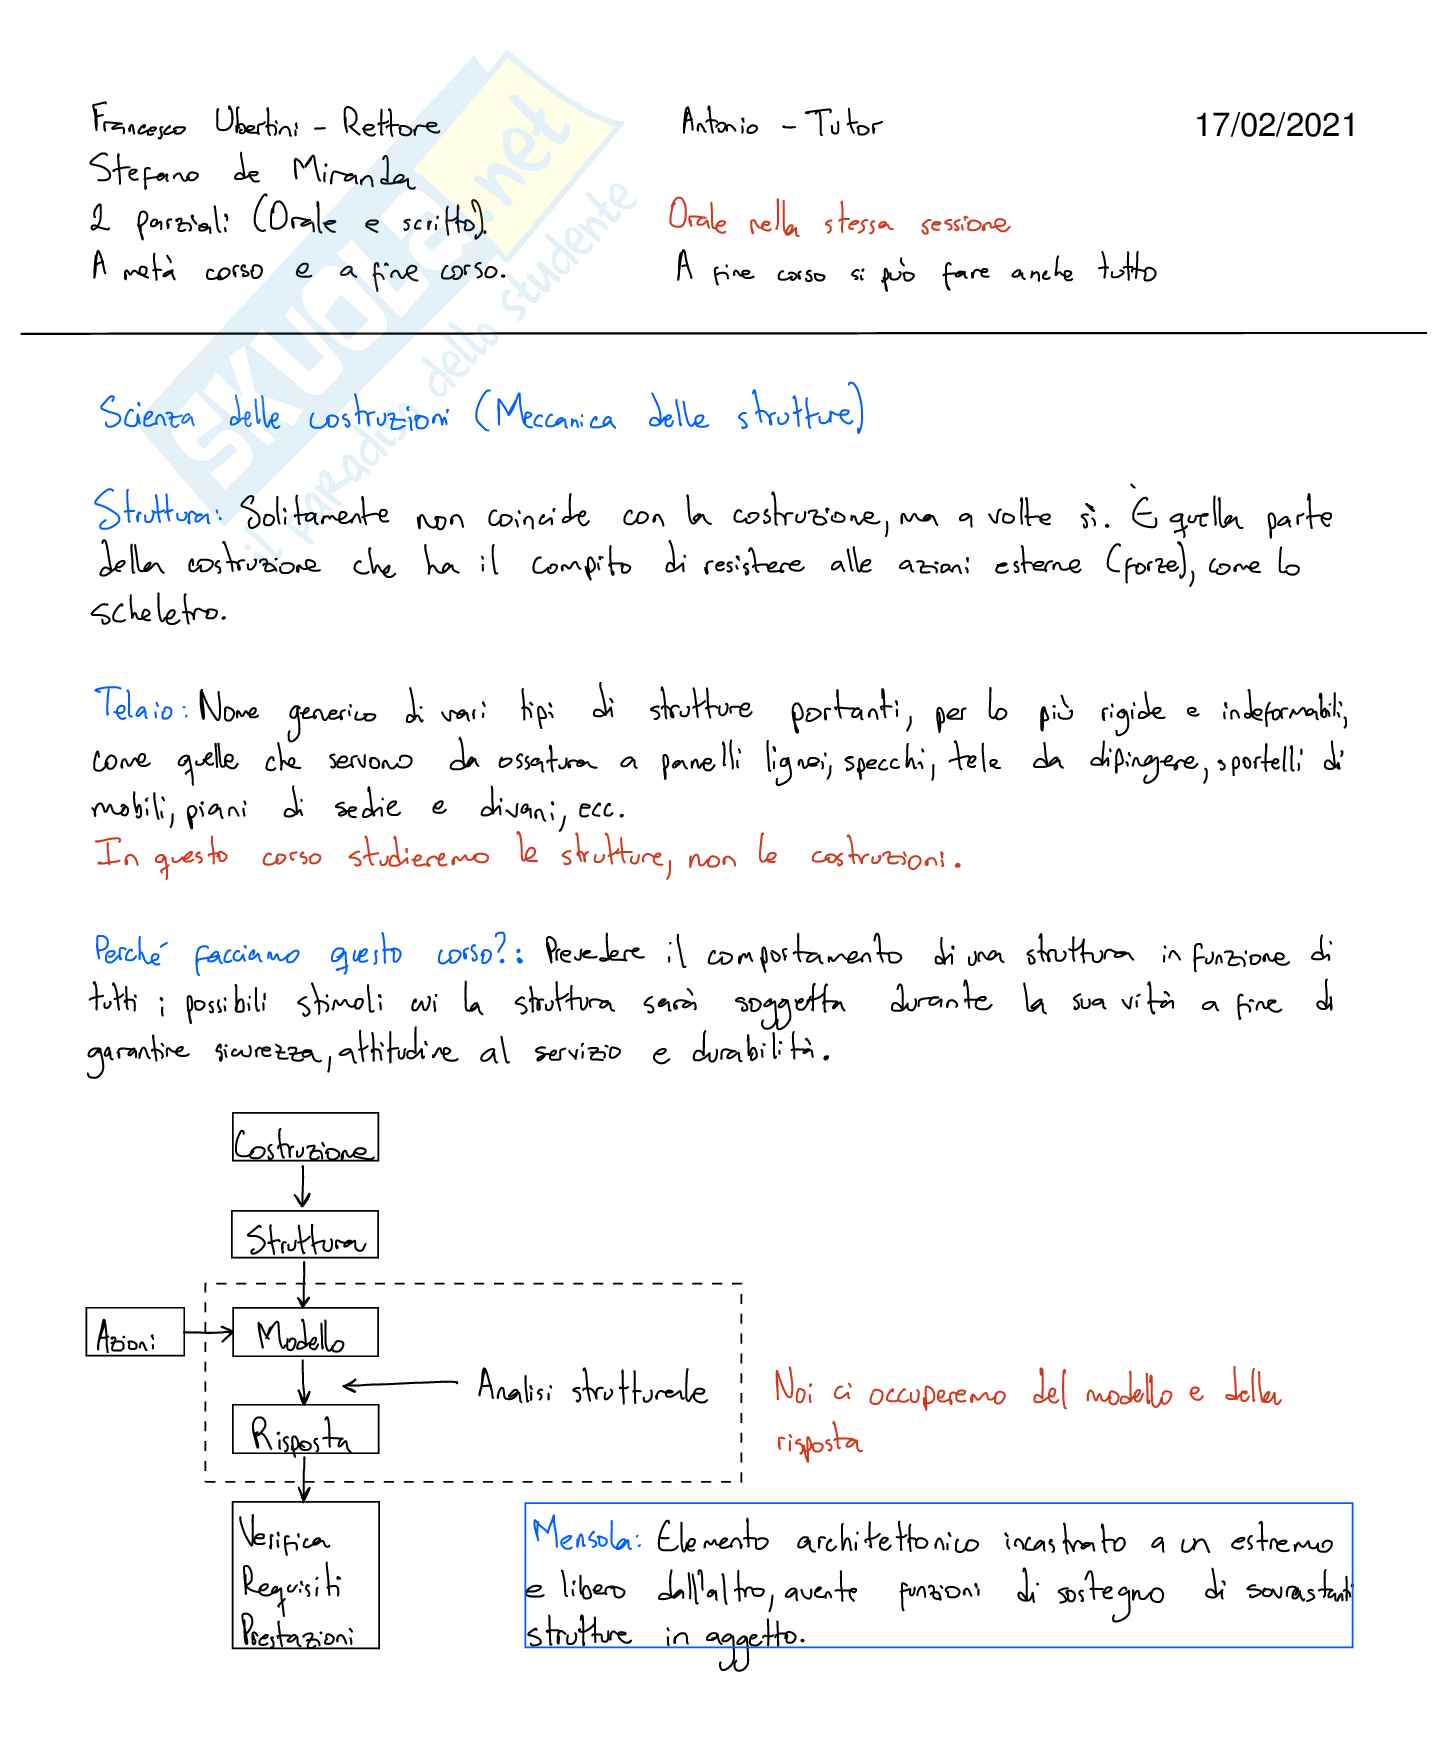 Francesco Ubertini - Rettore
Antonio - Tutor
17/02/2021
Stefano de Miranda
2 parziali (Orale e scritto).
Orale nella stessa sessione
A metà corso e a fine corso.
A fine corso si può fare anche tutto
SKUOLA.net
il paradiso dello studente
Scienza delle costruzioni (Meccanica delle strutture)
Struttura: Solitamente non coincide con la costruzione, ma a volte sì. È quella parte
della costruzione che ha il compito di resistere alle azioni esterne (forze), come lo
scheletro.
Telaio: Nome generico di vari tipi di strutture portanti, per lo più rigide e indeformabili,
come quelle che servono da ossatura a panelli lignei, specchi, tele da dipingere, sportelli di
mobili, piani di sedie e divani, ecc.
In questo corso studieremo le strutture, non le costruzioni.
Perché facciamo questo corso?: Prevedere il comportamento di una struttura in funzione di
tutti i possibili stimoli cui la struttura sarà soggetta durante la sua vità a fine di
garantire sicurezza, attitudine al servizio e durabilità.
Costruzione
Struttura
Azioni
Modello
Analisi strutturale
Noi ci occuperemo del modello e della
risposta
Risposta
Verifica
Requisiti
Prestazioni
Mensola: Elemento architettonico incastrato a un estremo
e libero dall'altro, avente funzioni di sostegno di sovrastanti
strutture in aggetto.